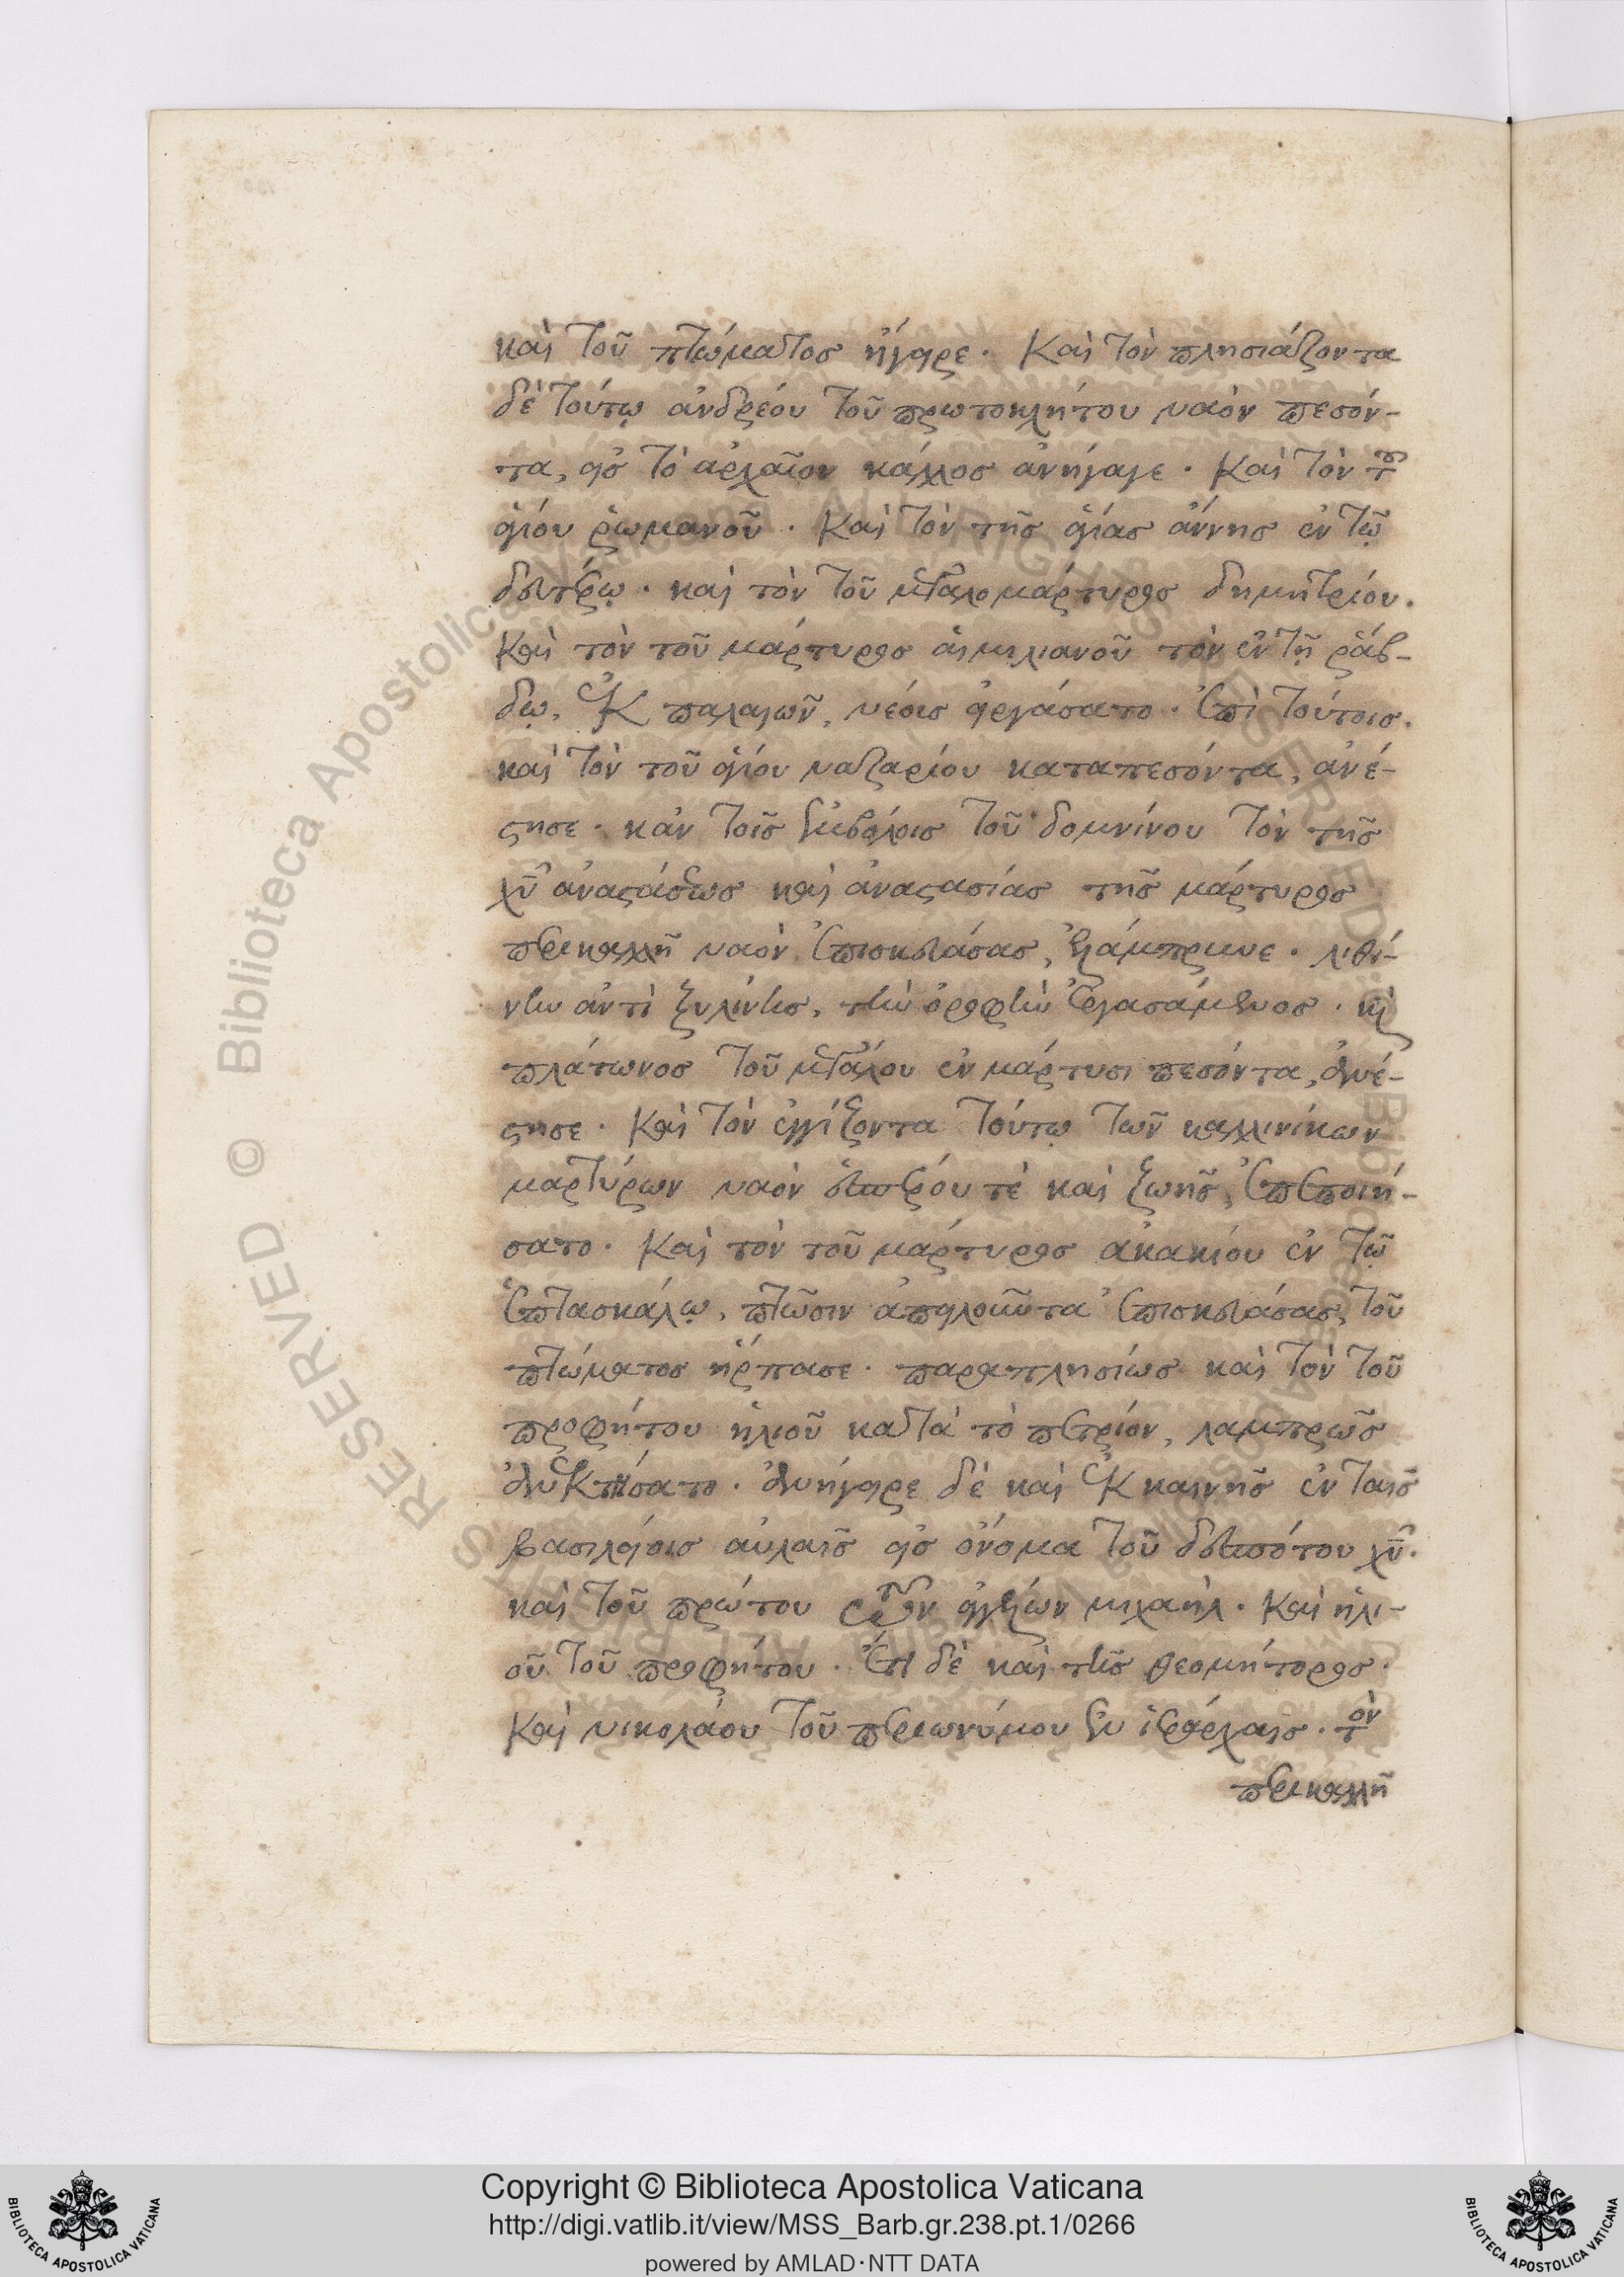 καὶ τοῦ πτώματος ἤγειρε. Καὶ τὸν πλησιάζοντα
δὲ τούτῳ ἀνδρέου τοῦ πρωτοκλήτου ναὸν πεσόν-
τα, εἰς τὸ ἀρχαῖον κάλλος ἀνήγαγε. Καὶ τὸν τοῦ
ἁγίου ῥωμανοῦ. Καὶ τὸν τῆς ἁγίας ἄννης ἐν τῷ
δευτέρῳ. καὶ τὸν τοῦ μεγαλομάρτυρος δημητρίου.
Καὶ τὸν τοῦ μάρτυρος αἰμιλιανοῦ τὸν ἐν τῇ ῥάβ-
δῳ, ἐκ παλαιῶν, νέους εἰργάσατο. ἐπὶ τούτοις.
καὶ τὸν τοῦ ἁγίου ναζαρίου καταπεσόντα, ἀνέ-
στησε. κἀν τοῖς ἐμβόλοις τοῦ δομνίνου τὸν τῆς
χῦ ἀναστάσεως καὶ ἀναστασίας τῆς μάρτυρος
περικαλλῆ ναὸν ἐπισκευάσας, ἐλάμπρυνε. λιθί-
νην ἀντὶ ξυλίνης, τὴν ὀροφὴν ἐργασάμενος. καὶ
πλάτωνος τοῦ μεγάλου ἐν μάρτυσι πεσόντα, ἀνέ-
στησε. Καὶ τὸν ἐγγίζοντα τούτῳ τῶν καλλινίκων
μαρτύρων ναὸν ἑσπέρου τὲ καὶ ζωῆς, ἐπεποιή-
σατο. Καὶ τὸν τοῦ μάρτυρος ἀκακίου ἐν τῷ
ἑπτασκάλῳ, πτῶσιν ἀπειλοῦντα ἐπισκευάσας, τοῦ
πτώματος ἥρπασε. παραπλησίως καὶ τὸν τοῦ
προφήτου ἡλιοῦ κατὰ τὸ πετρίον, λαμπρῶς
ἀνεκτήσατο. ἀνήγειρε δὲ καὶ ἐκ καινῆς ἐν ταῖς
βασιλείοις αὐλαῖς εἰς ὄνομα τοῦ δεσπότου χῦ.
καὶ τοῦ πρώτου τῶν ἀγγέλων μιχαήλ. Καὶ ἡλι-
οῦ τοῦ προφήτου. Ἔτι δὲ καὶ τῆς θεομήτορος.
Καὶ νικολάου τοῦ περιωνύμου ἐν ἱεράρχαις. τὸν
περικαλλῆ
Copyright © Biblioteca Apostolica Vaticana
http://digi.vatlib.it/view/MSS_Barb.gr.238.pt.1/0266
powered by AMLAD·NTT DATA